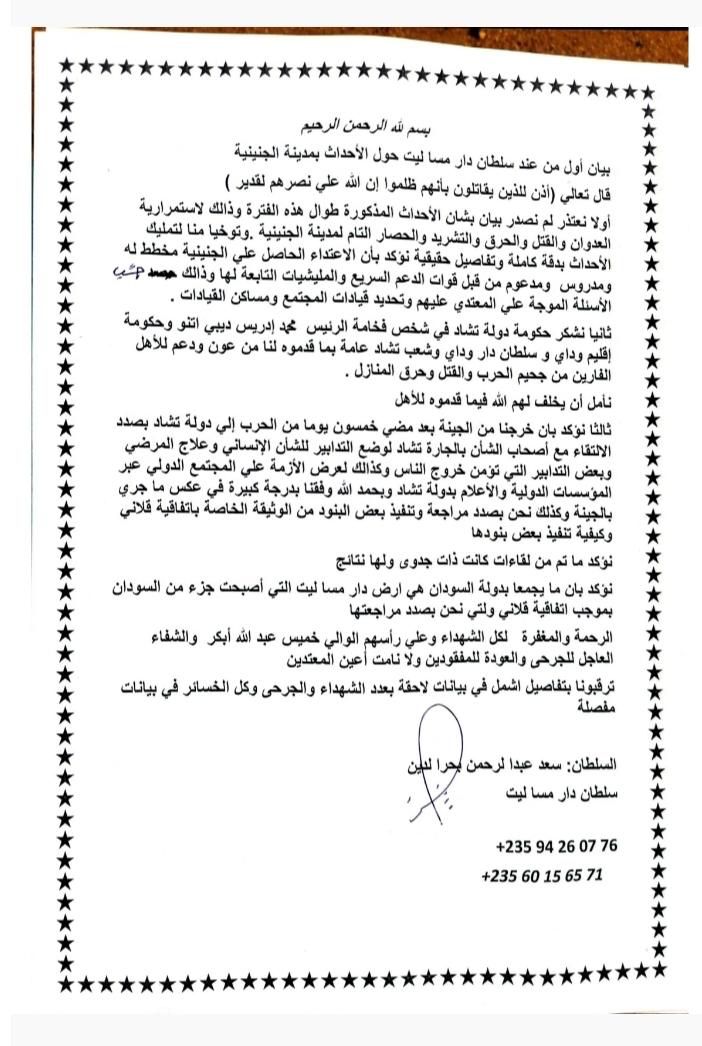 بسم لله الرحمن الرحيم
بيان أول من عند سلطان دار مسا ليت حول الأحداث بمدينة الجنينية
قال تعالي (أذن للذين يقاتلون بأنهم ظلموا إن الله علي نصرهم لقدير )
أولا نعتذر لم نصدر بيان بشان الأحداث المذكورة طوال هذه الفترة وذالك لاستمرارية
العدوان والقتل والحرق والتشريد والحصار التام لمدينة الجنينية .وتوخيا منا لتمليك
الأحداث بدقة كاملة وتفاصيل حقيقية نؤكد بأن الاعتداء الحاصل علي الجنينية مخطط له
ومدروس ومدعوم من قبل قوات الدعم السريع والمليشيات التابعة لها وذالك
الأسئلة الموجة علي المعتدي عليهم وتحديد قيادات المجتمع ومساكن القيادات .
ثانيا نشكر حكومة دولة تشاد في شخص فخامة الرئيس محمد إدريس ديبي اتنو وحكومة
إقليم وداي و سلطان دار وداي وشعب تشاد عامة بما قدموه لنا من عون ودعم للأهل
الفارين من جحيم الحرب والقتل وحرق المنازل .
نأمل أن يخلف لهم الله فيما قدموه للأهل
ثالثا نؤكد بان خرجنا من الجينة بعد مضي خمسون يوما من الحرب إلي دولة تشاد بصدد
الالتقاء مع أصحاب الشأن بالجارة تشاد لوضع التدابير للشأن الإنساني وعلاج المرضي
وبعض التدابير التي تؤمن خروج الناس وكذالك لعرض الأزمة علي المجتمع الدولي عبر
المؤسسات الدولية والأعلام بدولة تشاد وبحمد الله وفقنا بدرجة كبيرة في عكس ما جري
بالجينة وكذلك نحن بصدد مراجعة وتنفيذ بعض البنود من الوثيقة الخاصة باتفاقية قلاني
وكيفية تنفيذ بعض بنودها
نؤكد ما تم من لقاءات كانت ذات جدوى ولها نتائج
نؤكد بان ما يجمعا بدولة السودان هي ارض دار مسا ليت التي أصبحت جزء من السودان
بموجب اتفاقية قلاني ولتي نحن بصدد مراجعتها
الرحمة والمغفرة لكل الشهداء وعلي رأسهم الوالي خميس عبد الله أبكر والشفاء
العاجل للجرحى والعودة للمفقودين ولا نامت أعين المعتدين
ترقبونا بتفاصيل اشمل في بيانات لاحقة بعدد الشهداء والجرحى وكل الخسائر في بيانات
مفصلة
السلطان: سعد عبدا لرحمن بحرا لدين
سلطان دار مسا ليت
+235 94 26 07 76
+235 60 15 65 71